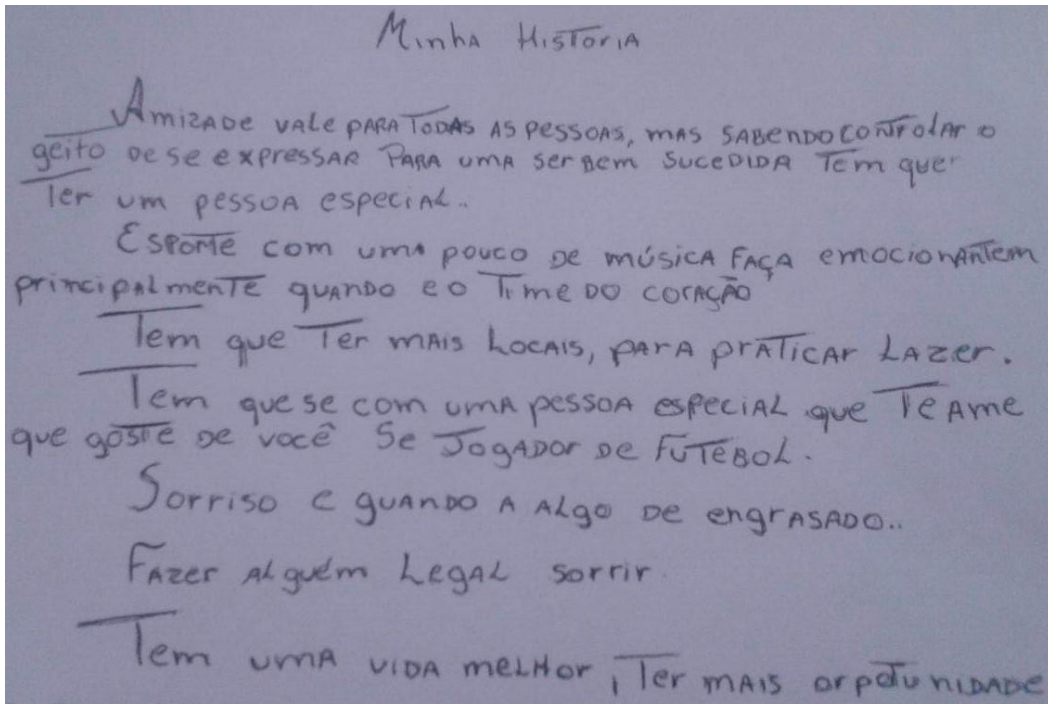 Minha Historia
Amizade vale para todas as pessoas, mas sabendo controlar o
geito de se expressar para uma ser bem sucedida tem quer
ter um pessoa especial..
Esporte com uma pouco de música faça emocionantem
principalmente quando e o time do coração
Tem que ter mais locais, para praticar lazer.
Tem que se com uma pessoa especial que te ame
que goste de você se jogador de futebol.
Sorriso e quando a algo de engrasado..
Fazer alguém legal sorrir.
Tem uma vida melhor, ter mais orpotunidade